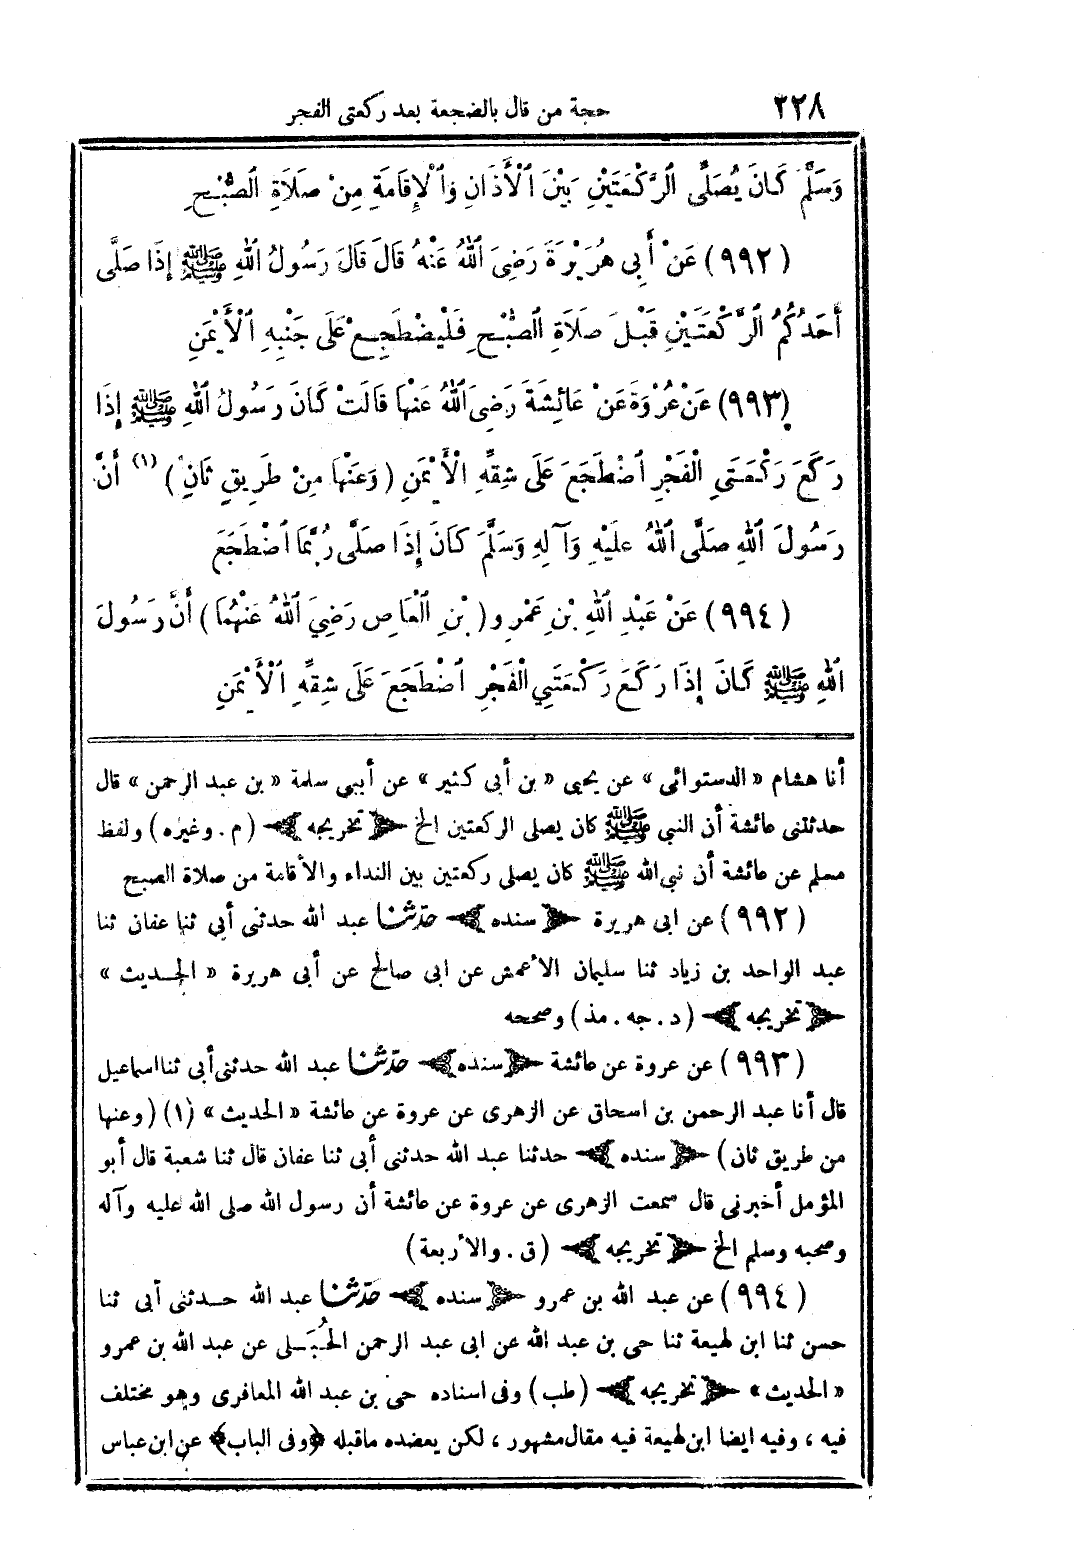 ٢٢٨
حجة من قال بالضجعة بعد ركعتى الفجر
وَسَلَّمَ كَانَ يُصَلِّى الرَّكْعَتَيْنِ بَيْنَ الْأَذَانِ وَالْإِقَامَةِ مِنْ صَلَاةِ الصُّبْحِ
(٩٩٢) عَنْ أَبِى هُرَيْرَةَ رَضِىَ اللهُ عَنْهُ قَالَ قَالَ رَسُولُ اللهِ ﷺ إِذَا صَلَّى
أَحَدُكُمُ الرَّكْعَتَيْنِ قَبْلَ صَلَاةِ الصُّبْحِ فَلْيَضْطَجِعْ عَلَى جَنْبِهِ الْأَيْمَنِ
(٩٩٣) عَنْ عُرْوَةَ عَنْ عَائِشَةَ رَضِىَ اللهُ عَنْهَا قَالَتْ كَانَ رَسُولُ اللهِ ﷺ إِذَا
رَكَعَ رَكْعَتَىِ الْفَجْرِ اضْطَجَعَ عَلَى شِقِّهِ الْأَيْمَنِ (وَعَنْهَا مِنْ طَرِيقٍ ثَانٍ) (١) أَنَّ
رَسُولَ اللهِ صَلَّى اللهُ عَلَيْهِ وَآلِهِ وَسَلَّمَ كَانَ إِذَا صَلَّى رُبَّمَا اضْطَجَعَ
(٩٩٤) عَنْ عَبْدِ اللهِ بْنِ عَمْرٍو (بْنِ الْعَاصِ رَضِيَ اللهُ عَنْهُمَا) أَنَّ رَسُولَ
اللهِ ﷺ كَانَ إِذَا رَكَعَ رَكْعَتَيِ الْفَجْرِ اضْطَجَعَ عَلَى شِقِّهِ الْأَيْمَنِ
أنا هشام «الدستوائى» عن يحيى «بن أبى كثير» عن أبيى سلمة «بن عبد الرحمن» قال
حدثتنى عائشة أن النبي ﷺ كان يصلى الركعتين الخ ﴿تخريجه﴾ (م . وغيره) ولفظ
مسلم عن عائشة أن نبى الله ﷺ كان يصلى ركعتين بين النداء والأقامة من صلاة الصبح
(٩٩٢) عن ابى هريرة ﴿سنده﴾ حدّثنا عبد الله حدثنى أبي ثنا عفان ثنا
عبد الواحد بن زياد ثنا سليمان الأعمش عن ابى صالح عن أبى هريرة «الحديث»
﴿تخريجه﴾ (د . جه . مذ) وصححه
(٩٩٣) عن عروة عن عائشة ﴿سنده﴾ حدّثنا عبد الله حدثنى أبى ثنا اسماعيل
قال أنا عبد الرحمن بن اسحاق عن الزهرى عن عروة عن عائشة «الحديث» (١) (وعنها
من طريق ثان) ﴿سنده﴾ حدثنا عبد الله حدثنى أبى ثنا عفان قال ثنا شعبة قال أبو
المؤمل أخبرنى قال سمعت الزهرى عن عروة عن عائشة أن رسول الله صلى الله عليه وآله
وصحبه وسلم الخ ﴿تخريجه﴾ (ق . والأربعة)
(٩٩٤) عن عبد الله بن عمرو ﴿سنده﴾ حدّثنا عبد الله حدثنى أبى ثنا
حسن ثنا ابن لهيعة ثنا حى بن عبد الله عن ابى عبد الرحمن الحُبَلى عن عبد الله بن عمرو
«الحديث» ﴿تخريجه﴾ (طب) وفى اسناده حى بن عبد الله المعافرى وهو مختلف
فيه ، وفيه ايضا ابن لهيعة فيه مقال مشهور ، لكن يعضده ماقبله ﴿وفى الباب﴾ عن ابن عباس